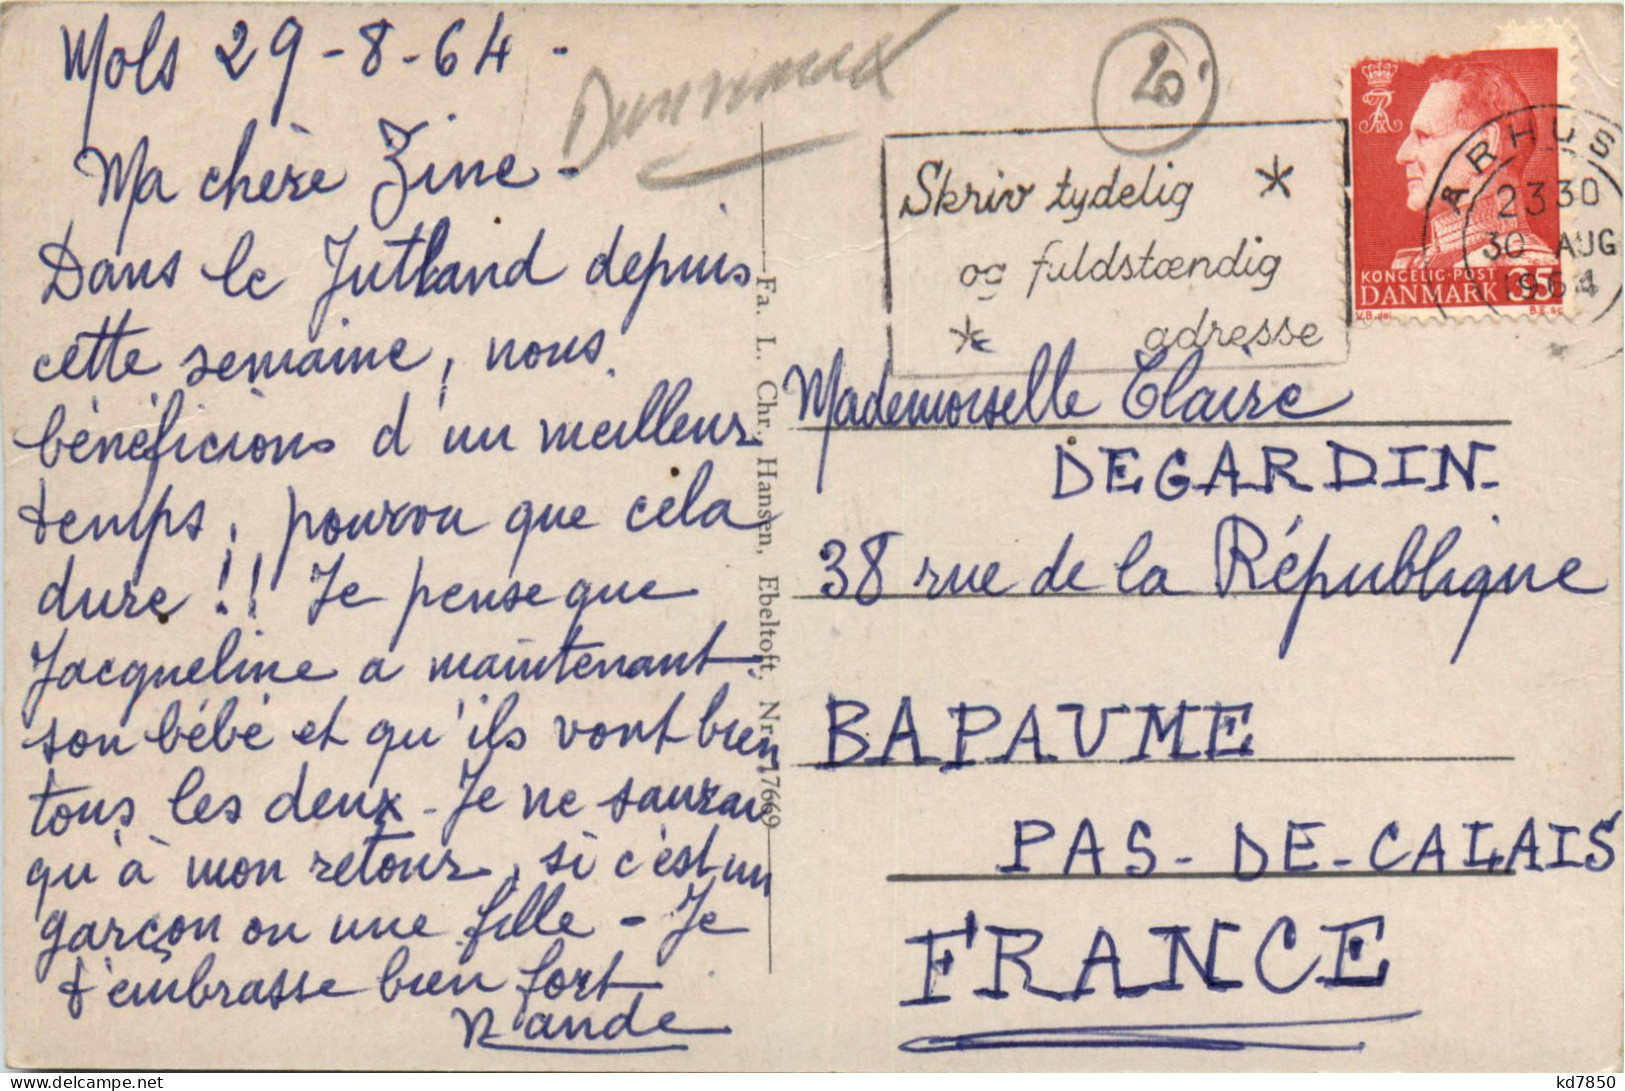 Mols 29-8-64-
Danemark
20
Ma chère Zine -
Dans le Jutland depuis
cette semaine, nous
bénéficions d'un meilleur
temps, pourvu que cela
dure !! Je pense que
Jacqueline a maintenant
son bébé et qu'ils vont bien
tous les deux - Je ne saurai
qu'à mon retour, si c'est un
garçon ou une fille - Je
t'embrasse bien fort
Nande
Fa. L. Chr. Hansen, Ebeltoft, Nr. 17669
Skriv tydelig *
og fuldstændig
* adresse
KONGELIG POST
DANMARK 35
V.B. del. B.E. sc.
AARHUS
2330
30 AUG
1964
Mademoiselle Claire
DEGARDIN
38 rue de la République
BAPAUME
PAS-DE-CALAIS
FRANCE
kd7850